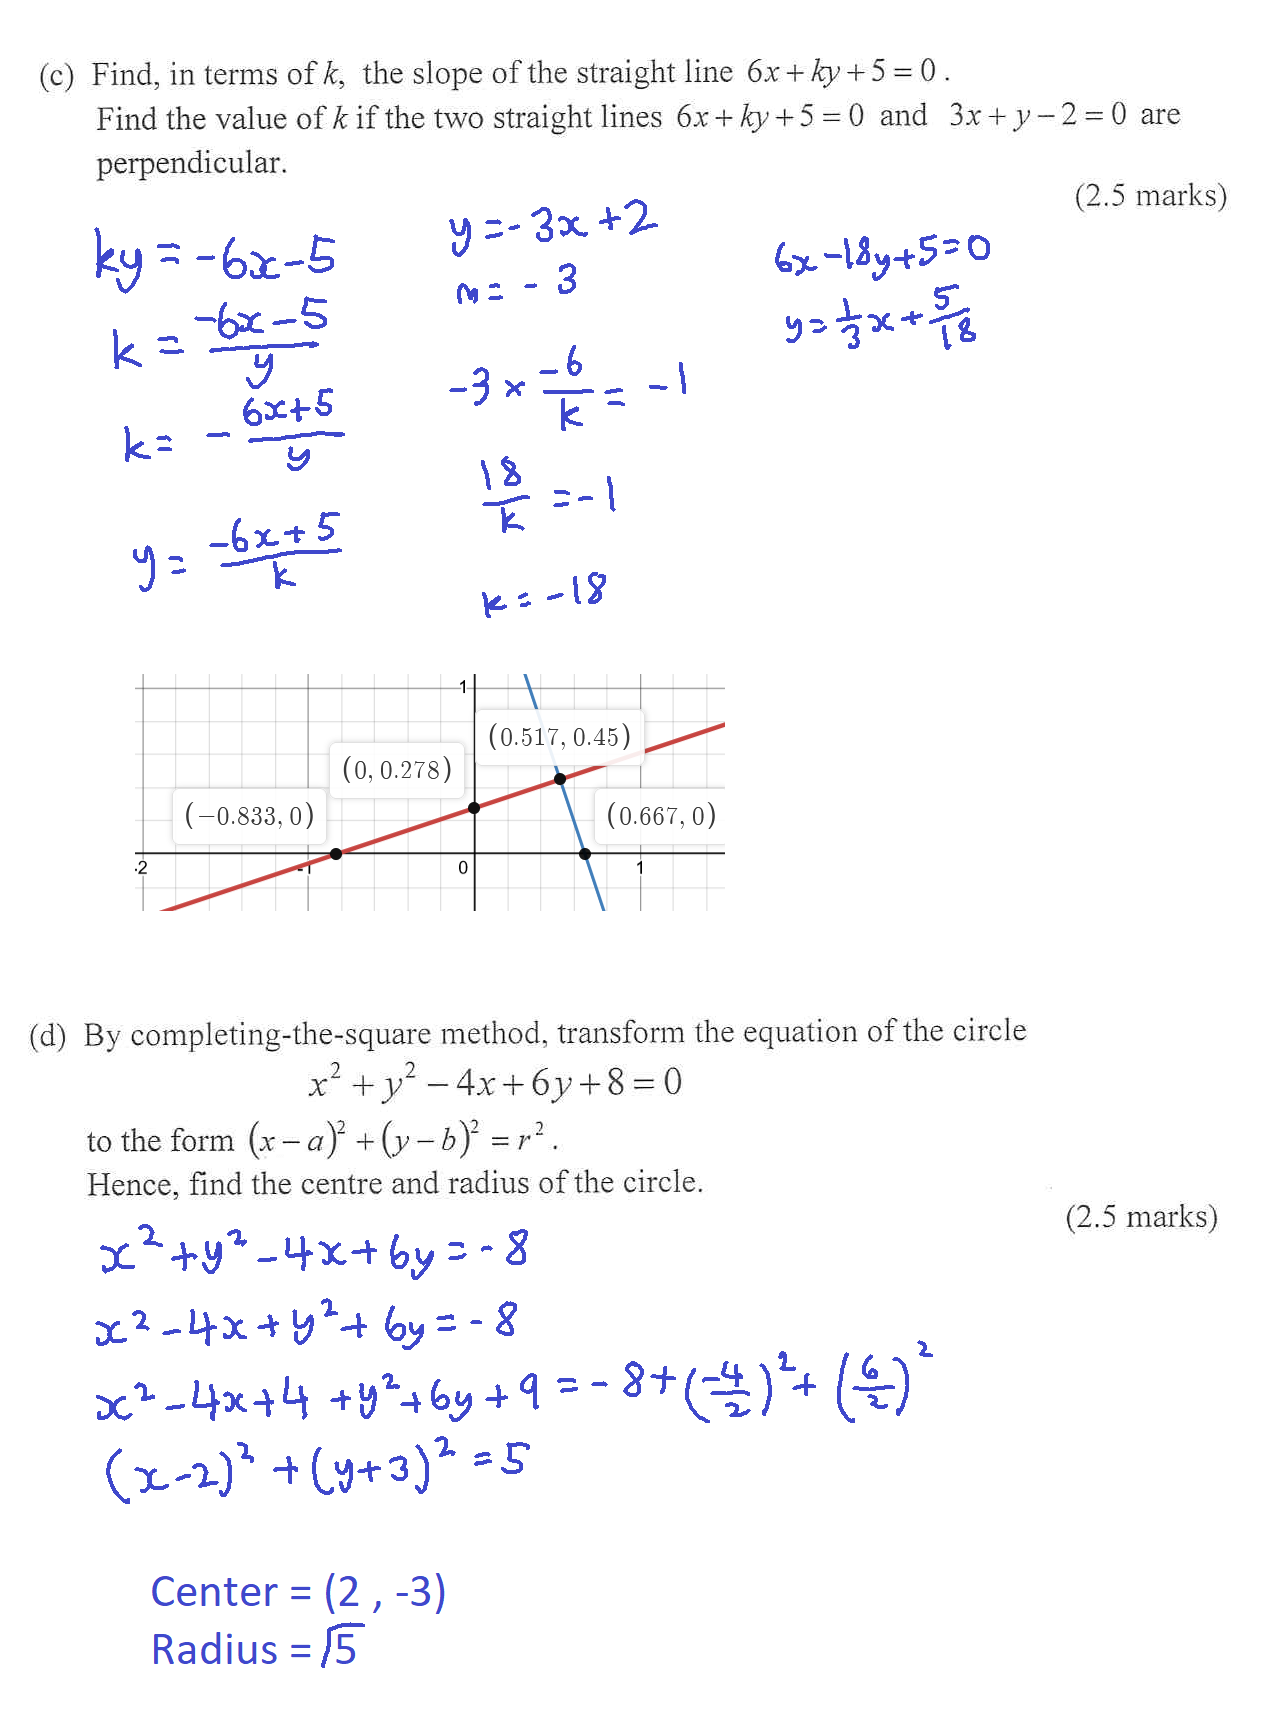 (c) Find, in terms of k, the slope of the straight line 6x + ky + 5 = 0 .
Find the value of k if the two straight lines 6x + ky + 5 = 0 and 3x + y − 2 = 0 are
perpendicular.
(2.5 marks)
ky = -6x - 5
k = (-6x - 5)/y
k = - (6x + 5)/y
y = (-6x + 5)/k
y = -3x + 2
m = -3
-3 × -6/k = -1
18/k = -1
k = -18
6x - 18y + 5 = 0
y = 1/3 x + 5/18
1
(0.517, 0.45)
(0, 0.278)
(−0.833, 0)
(0.667, 0)
-2 -1 0 1
(d) By completing-the-square method, transform the equation of the circle
x² + y² − 4x + 6y + 8 = 0
to the form (x − a)² + (y − b)² = r² .
Hence, find the centre and radius of the circle.
(2.5 marks)
x² + y² - 4x + 6y = -8
x² - 4x + y² + 6y = -8
x² - 4x + 4 + y² + 6y + 9 = -8 + (-4/2)² + (6/2)²
(x - 2)² + (y + 3)² = 5
Center = (2 , -3)
Radius = √5